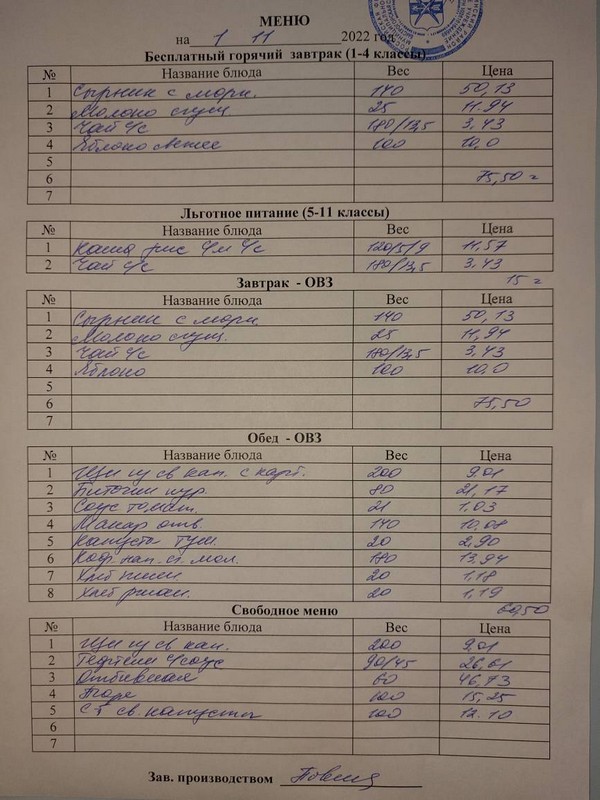 МЕНЮ
на 1 11 2022 год
Бесплатный горячий завтрак (1-4 классы)
№ Название блюда Вес Цена
1 Сырник с морк. 140 50,13
2 Молоко сгущ. 25 11.94
3 Чай с/с 180/13,5 3.43
4 Яблоко свежее 100 10,0
5
6 75,50
7
Льготное питание (5-11 классы)
№ Название блюда Вес Цена
1 Каша рис с/м с/с 120/5/9 11,57
2 Чай с/с 180/13,5 3.43
Завтрак - ОВЗ 15
№ Название блюда Вес Цена
1 Сырник с морк. 140 50,13
2 Молоко сгущ. 25 11,94
3 Чай с/с 180/13,5 3,43
4 Яблоко 100 10,0
5
6 75,50
7
Обед - ОВЗ
№ Название блюда Вес Цена
1 Щи из св кап. с карт. 200 9.01
2 Биточки кур. 80 21,17
3 Соус томат. 21 1,03
4 Макар отв. 140 10,08
5 Капуста туш. 20 2,90
6 Коф. нап. сг. мол. 180 13,94
7 Хлеб пшен. 20 1,18
8 Хлеб ржан. 20 1,19
Свободное меню 60,50
№ Название блюда Вес Цена
1 Щи из св кап. 200 9,01
2 Тефтели с/соус 90/45 26,61
3 Отбивная 60 46,73
4 Пюре 100 15,25
5 С-т св. капусты 100 12.10
6
7
Зав. производством